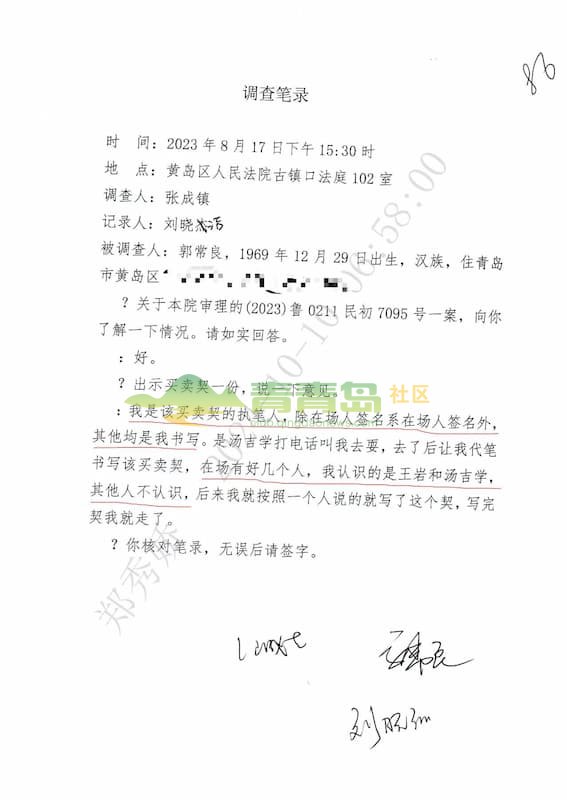 86
调查笔录
时 间：2023年8月17日下午15:30时
地 点：黄岛区人民法院古镇口法庭102室
调查人：张成镇
记录人：刘晓
被调查人：郭常良，1969年12月29日出生，汉族，住青岛
市黄岛区
？关于本院审理的(2023)鲁0211民初7095号一案，向你
了解一下情况。请如实回答。
：好。
？出示买卖契一份，说一下意见。
：我是该买卖契的执笔人，除在场人签名系在场人签名外，
其他均是我书写。是汤吉学打电话叫我去耍，去了后让我代笔
书写该买卖契，在场有好几个人，我认识的是王岩和汤吉学，
其他人不认识，后来我就按照一个人说的就写了这个契，写完
契我就走了。
？你核对笔录，无误后请签字。
青青岛 社区
郑秀娇